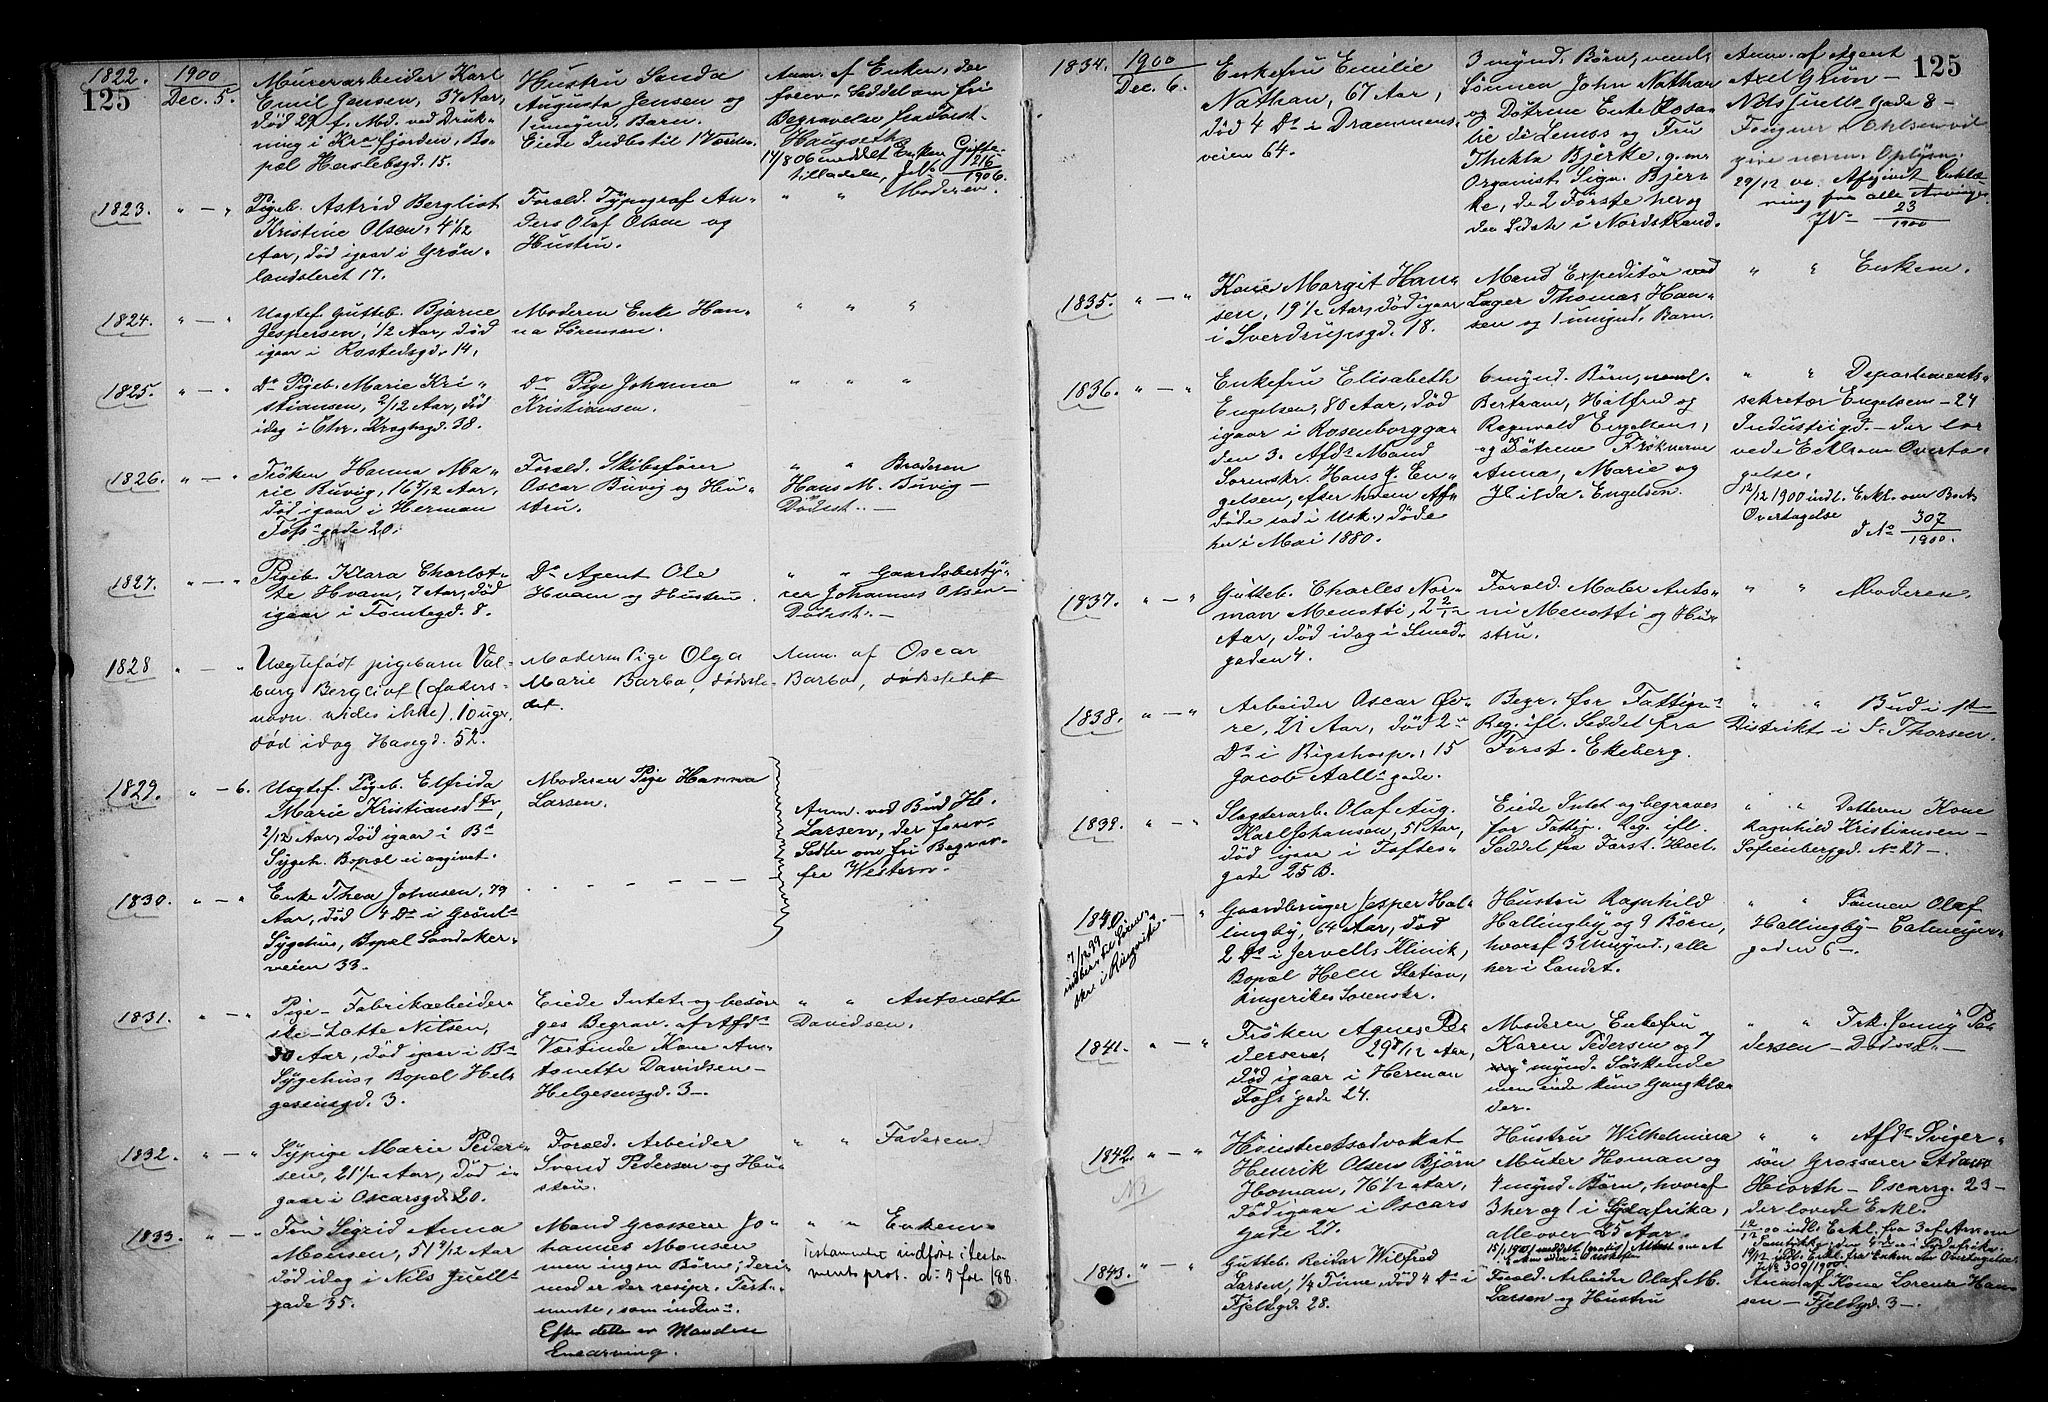 125
1822.
1900
Dec. 5.
Murerarbeider Karl
Emil Jensen, 37 Aar,
død 29 f. Md. ved Druk-
ning i Kra fjorden, Bo-
pæl Haslebgd. 15.
Hustru Sanda
Augusta Jensen og
1 umynd. Barn.
Eiede Indbo til 17 Kroner.
Anm. af Enken, der
forev. Seddel om fri
Begravelse fra Forst.
Haugseth
17/8 06 meddelt Enken Gifte-
tilladelse, J No 216/1906.
1823.
" — "
Pigeb. Astrid Bergliot
Kristine Olsen, 4 1/12
Aar, død igaar i Grøn-
landsleret 17.
Foræld. Typograf An-
ders Olaf Olsen og
Hustru.
" " Moderen.
1824.
" — "
Uægtef. Gutteb. Bjarne
Jespersen, 1/2 Aar, død
igaar i Rostedsgd. 14.
Moderen Enke Han-
na Sørensen.
" " "
1825.
" — "
Do Pigeb. Marie Kri-
stiansen, 2/12 Aar, død
idag i Chr. Kroghsgd. 38.
Do Pige Johanna
Kristiansen.
" " "
1826.
" — "
Frøken Hanna Ma-
rie Buvig, 16 7/12 Aar,
død igaar i Herman
Foss' gade 20.
Foræld. Skibsfører
Oscar Buvig og Hu-
stru.
" " Broderen
Hans M. Buvig —
Dødsst. —
1827.
" — "
Pigeb. Klara Charlot-
te Hvam, 7 Aar, død
igaar i Tomtegd. 8.
Do Agent Ole
Hvam og Hustru.
" " Gaardsbesty-
rer Johannes Olsen —
Dødsst. —
1828
" — "
Uægtefødt pigebarn Val-
borg Bergliot (faders-
navn vides ikke), 10 uger,
død idag Hausgd. 52.
Moderen Pige Olga
Marie Barbo, dødsste-
det.
Anm. af Oscar
Barbo, dødsstedet
1829.
" — 6.
Uægtef. Pigeb. Elfrida
Marie Kristiansdtr,
2/12 Aar, død igaar i Bs
Sygeh. Bopæl ei angivet.
Moderen Pige Hanna
Larsen.
Anm. ved Bud H.
Larsen, der forev.
Sedler om fri Begrav.
fra Western.
1830.
" — "
Enke Thea Johnsen, 79
Aar, død 4 Ds i Grønl.s
Sygehus, Bopæl Sandaker-
veien 33.
1831.
" — "
Pige - Fabrikarbeider-
ske - Lotte Nilsen,
30 Aar, død igaar i Bs
Sygehus, Bopæl Hel-
gesensgd. 3.
Eiede Intet og besør-
ges Begrav. af Afds
Værtinde Kone An-
tonette Davidsen —
Helgesensgd. 3 —.
" " Antonette
Davidsen.
1832.
" — "
Sypige Marie Peder-
sen, 21 1/2 Aar, død i-
gaar i Oscarsgd. 20.
Foræld. Arbeider
Svend Pedersen og Hu-
stru.
" " Faderen
1833.
" — "
Fru Sigrid Anna
Monsen, 51 9/12 Aar
død idag i Nils Juells
gade 35.
Mand Grosserer Jo-
hannes Monsen
men ingen Børn; derim-
mod er der resipr. Test-
mente, som inder.
Efter dette er Manden
Enearving.
" " Enkem.
Testamentet indført i Testa-
ments prot. No 7 fol 188.
125
1834.
1900
Dec. 6.
Enkefru Emilie
Nathan, 67 Aar,
død 4 Ds i Drammens-
veien 64.
3 mynd. Børn, neml.
Sønnen John Nathan
og Døtrene Enke Rosa-
lie de Lemos og Fru
Thekla Bjerke, g. m.
Organist Sign. Bjer-
ke, de 2 Første her og
den Sidste i Nordstrand.
Anm. af Agent
Axel Grün —
Nils Juells Gade 8 —
Fougner & Ohlsen vil
give nærm. Oplysn.
29/12 ov. Afgivet Erklæ-
ring fra alle Arvinger
J No 23/1900
1835.
" — "
Kone Margit Han-
sen, 19 1/2 Aar, død igaar
i Sverdrupsgd. 18.
Mand Expeditør ved
Lager Thomas Han-
sen og 1 umynd. Barn.
" " Enkem.
1836.
" — "
Enkefru Elisabeth
Engelsen, 80 Aar, død
igaar i Rosenborgga-
den 3. Afds Mand
Sorenskr. Hans J. En-
gelsen, efter hvem Af-
døde sad i Usk., døde
her i Mai 1880.
6 mynd. Børn, neml.
Bertram, Halfred og
Ragnvald Engelsen,
og Døtrene Frøknerne
Anna, Marie og
Hilda Engelsen.
" " Departements-
sekretær Engelsen — 24
Industrigd. — der lo-
vede Erkl. om Overta-
gelse.
12/12 1900 indl. Erkl. om Boets
Overtagelse
J No 307/1900.
1837.
" — "
Gutteb. Charles Nor-
man Menotti, 2 2/12
Aar, død idag i Smed-
gaden 4.
Foræld. Maler Anto-
ni Menotti og Hu-
stru.
" " Moderen.
1838.
" — "
Arbeider Oscar Øv-
re, 21 Aar, død 2
Ds i Rigshosp., 15
Jacob Aalls gade.
Begr. for Fattigv.s
Reg. ifl. Seddel fra
Forst. Ekeberg.
" " Bud i 1st
Distrikt i S. Thorsen.
1839.
" — "
Slagterarb. Olaf Aug.
Karl Johansen, 51 Aar,
død igaar i Toftes-
gade 25 B.
Eiede Intet og begraves
for Fattigv. Reg. ifl.
Seddel fra Forst. Hoel.
" " Datteren Kone
Ragnhild Kristiansen —
Sofienberggd. No 27 —.
1840.
" — "
7/12 99
indber. til Soren-
skr. i Ringerike.
Gaardbruger Jesper Hal-
lingby, 64 Aar, død
2 Ds i Jervells Klinik,
Bopæl Heen Station,
Ringerikes Sorenskr.
Hustru Ragnhild
Hallingby og 9 Børn,
hvoraf 3 Umynd., alle
her i Landet.
" " Sønnen Olaf
Hallingby — Calmeyer-
gaden 6 —
1841.
" — "
Frøken Agnes Pe-
dersen, 29 8/12 Aar,
død igaar i Herman
Foss' gade 24.
Moderen Enkefru
Karen Pedersen og 7
mynd. Søskende
men eiede kun Gangklæ-
der.
" " Frk. Jenny Pe-
dersen — Dødsst. —
1842.
" — "
NB
Høiesteretsadvokat
Henrik Olsen Bjørn
Homan, 76 1/2 Aar,
død igaar i Oscars
gade 27.
Hustru Wilhelmina
Muter Homan og
4 mynd. Børn, hvoraf
3 her og 1 i Sydafrika,
alle over 25 Aar.
15/1 1901 meddelt (gratis) Attest om at
" " Afds Sviger-
søn Grosserer Adam
Hiorth — Oscarsg. 23 —
der lovede Erkl.
12/12 00 indl. Erkl. fra 3 af Arv. om
Samtykke; den 4de er i Sydafrika.
19/12 indl. Erkl. fra Enken om Overtagelse
J No 309/1900.
1843.
" — "
Gutteb. Reidar Wilfred
Larsen, 1/4 Time, død 4 Ds i
Fjeldgd. 28.
Foræld. Arbeider Olaf M.
Larsen og Hustru
Anm. af Kone Lorense Han-
sen — Fjeldgd. 3 —.